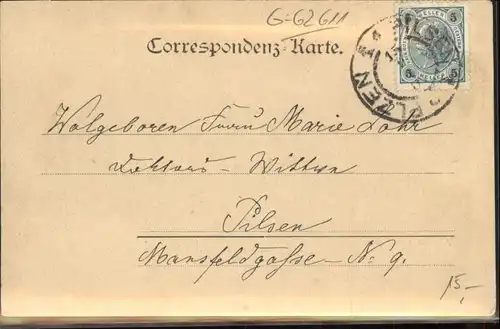 G-62611
Correspondenz-Karte.
5 HELLER 5
PILSEN
PLZEŇ
Wolgeboren Frau Marie Lohr
Doktors- Wittwe
Pilsen
Mansfeldgasse - No 9.
15,-